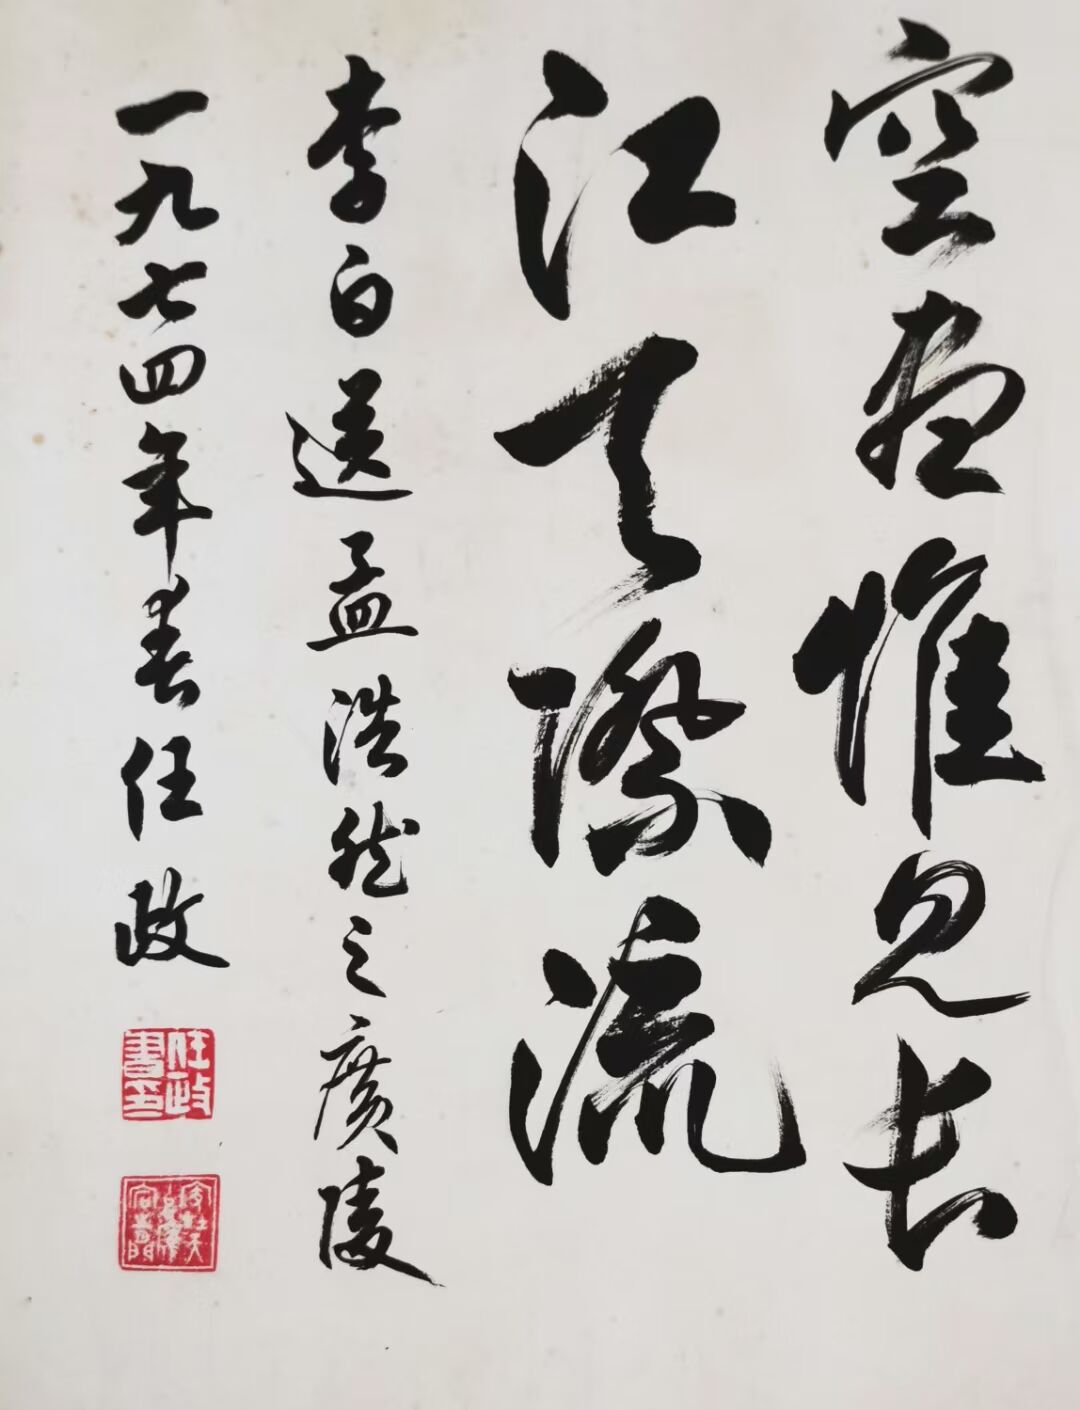 空尽惟见长
江天際流
李白送孟浩然之廣陵
一九七四年春任政
任政
書印